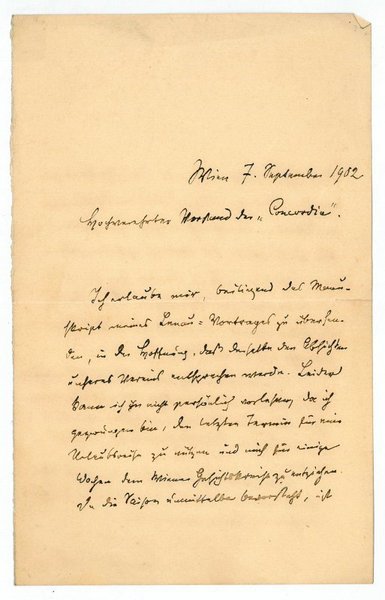 Wien 7. September 1902
Hochverehrter Vorstand der „Concordia".
Ich erlaube mir, beiliegend das Manu-
skript meines Lenau-Vortrages zu übersen-
den, in der Hoffnung, daß derselbe den Absichten
unseres Vereins entsprechen werde. Leider
kann ich ihn nicht persönlich vorlesen, da ich
gezwungen bin, den letzten Termin für eine
Urlaubsreise zu nützen und mich für einige
Wochen dem Wiener Gesichtskreise zu entziehen.
Da die Saison unmittelbar bevorsteht, ist